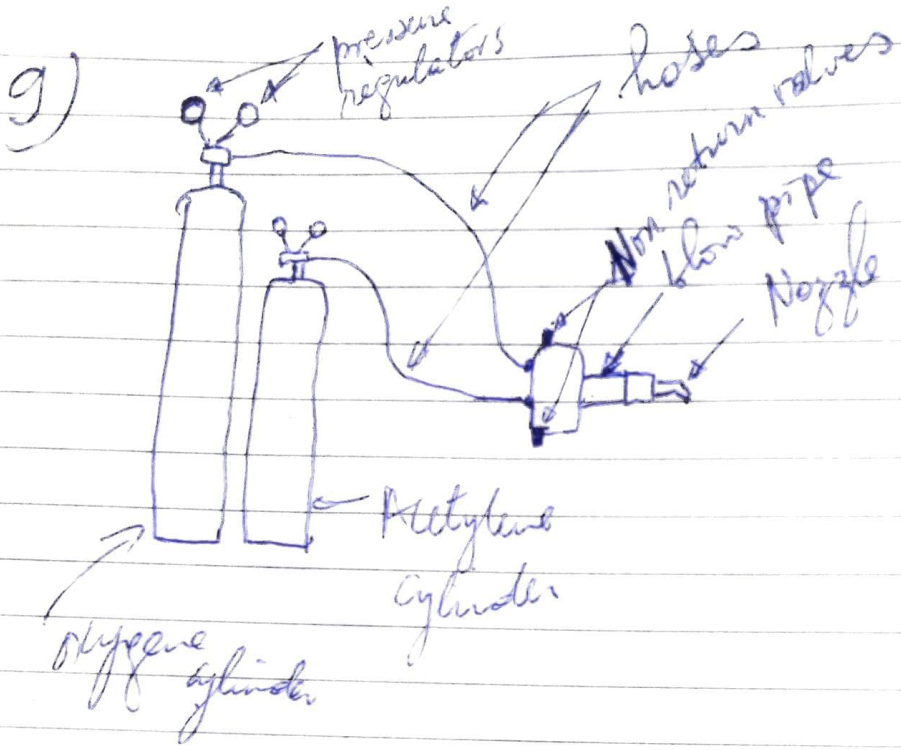 9)
pressure
regulators
hoses
Non return valves
blow pipe
Nozzle
Acetylene
cylinder
oxygene
cylinder